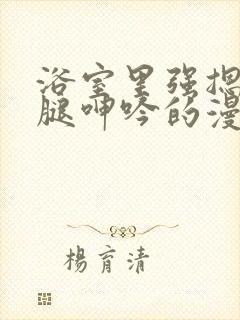 浴室里强摁
腿呻吟的漫
楊育清